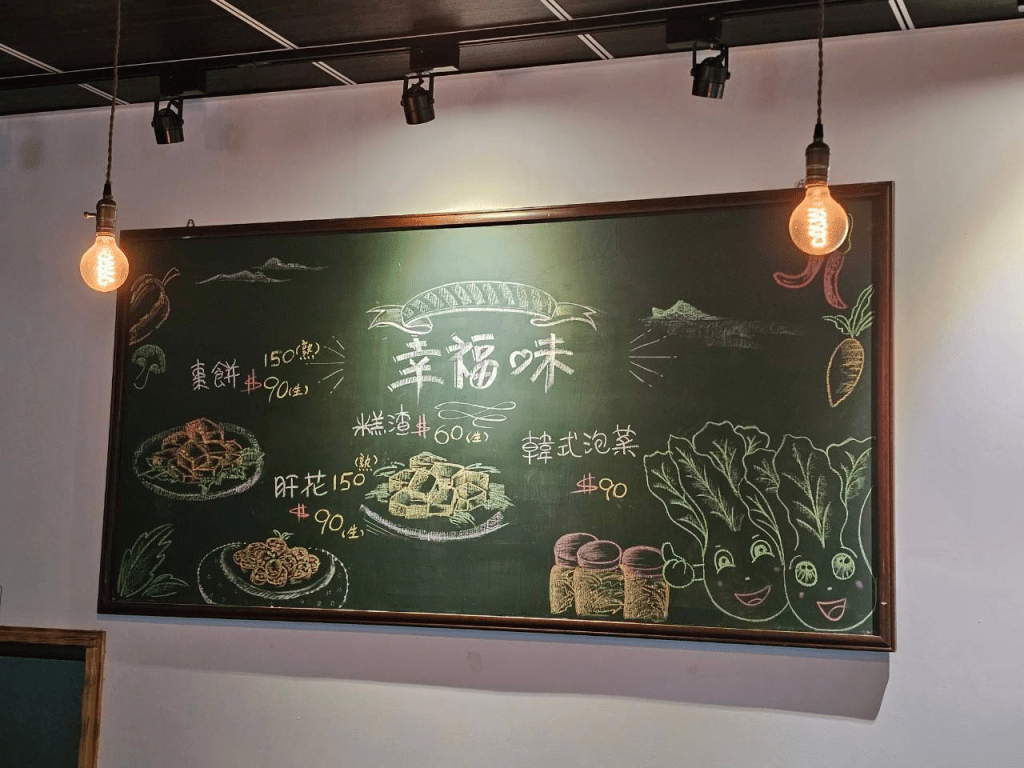 幸福味
150(熟)
棗餅 $90(生)
糕渣 $60(生)
肝花 150(熟)
$90(生)
韓式泡菜
$90